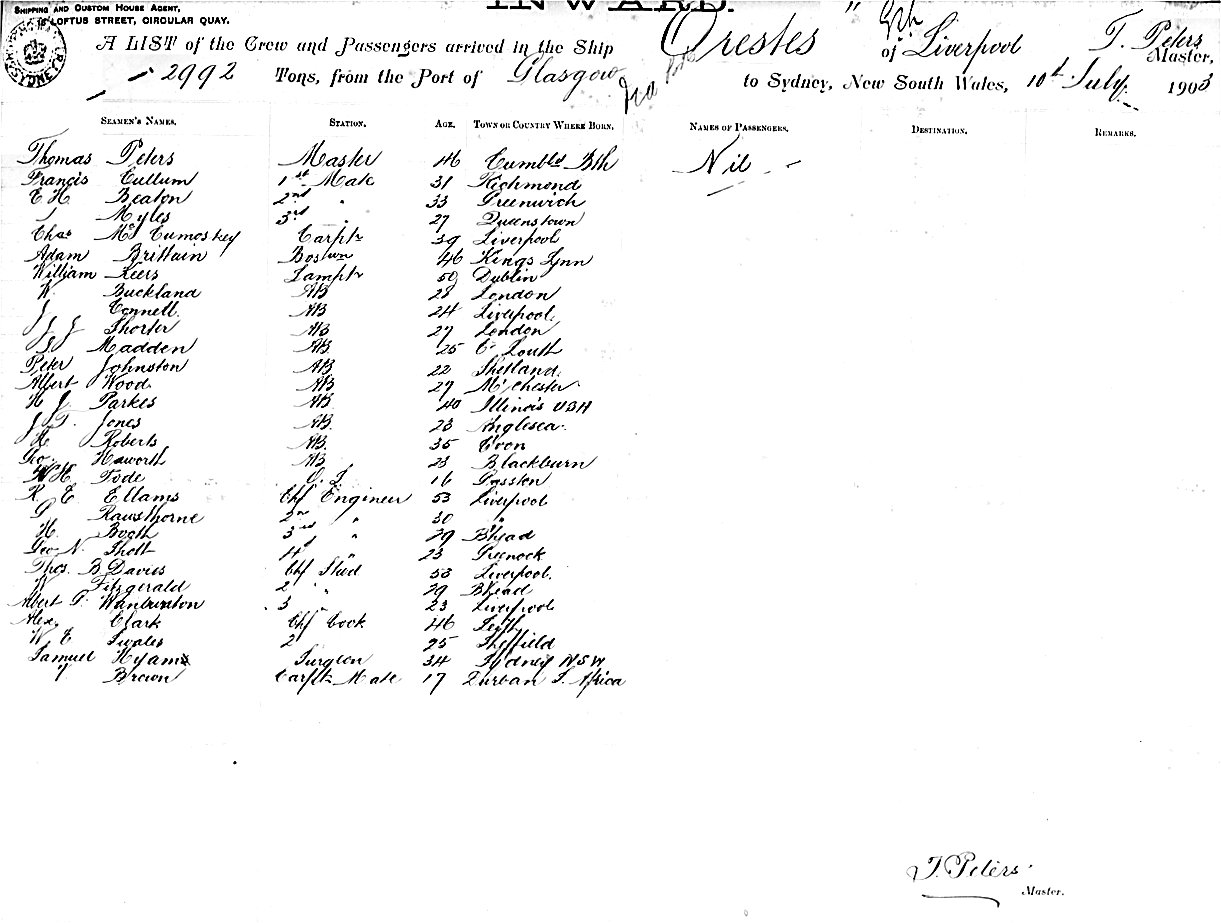 INWARD.
SHIPPING AND CUSTOM HOUSE AGENT,
16 LOFTUS STREET, CIRCULAR QUAY.
A LIST of the Crew and Passengers arrived in the Ship Orestes of Liverpool T. Peters Master,
2992 Tons, from the Port of Glasgow to Sydney, New South Wales, 10th July 1903
SEAMEN'S NAMES. STATION. AGE. TOWN OR COUNTRY WHERE BORN. NAMES OF PASSENGERS. DESTINATION. REMARKS.
Thomas Peters Master 46 Cumbld Bth Nil
Francis Cullum 1st Mate 31 Richmond
E H Beaton 2nd " 33 Greenwich
J Myles 3rd " 27 Queenstown
Chas Mc Cumoskey Carptr 39 Liverpool
Adam Brittain Bosun 46 Kings Lynn
William Keers Lamptr 50 Dublin
W. Buckland AB 28 London
J Connell. AB 24 Liverpool.
J J Shorter AB 27 London
Madden AB 25 Co Louth
Peter Johnston AB 22 Shetland.
Albert Wood. AB 29 McChester
H J Parkes AB 40 Illinois USA
J T. Jones AB. 23 Anglesea.
R Roberts AB. 35
Geo. Haworth AB 23 Blackburn
W H. Tode O.S. 16
R. E. Ellams Chf Engineer 53 Liverpool
Rawsthorne 2nd " 30 "
H. Booth 3rd " 29 B'head
Geo N. Shott 4th " 23 Greenock
Thos. B Davies Chf Stud 53 Liverpool.
W Fitzgerald 2 " 29 Bhead
Albert T. 3 23 Liverpool
Alex, Clark Chf Cook 46 Leith
W E Swales 2 " 25 Sheffield
Samuel Hyams Surgeon 34 Sydney NSW
Brown Carptr Mate 17 Durban S. Africa
T. Peters
Master.